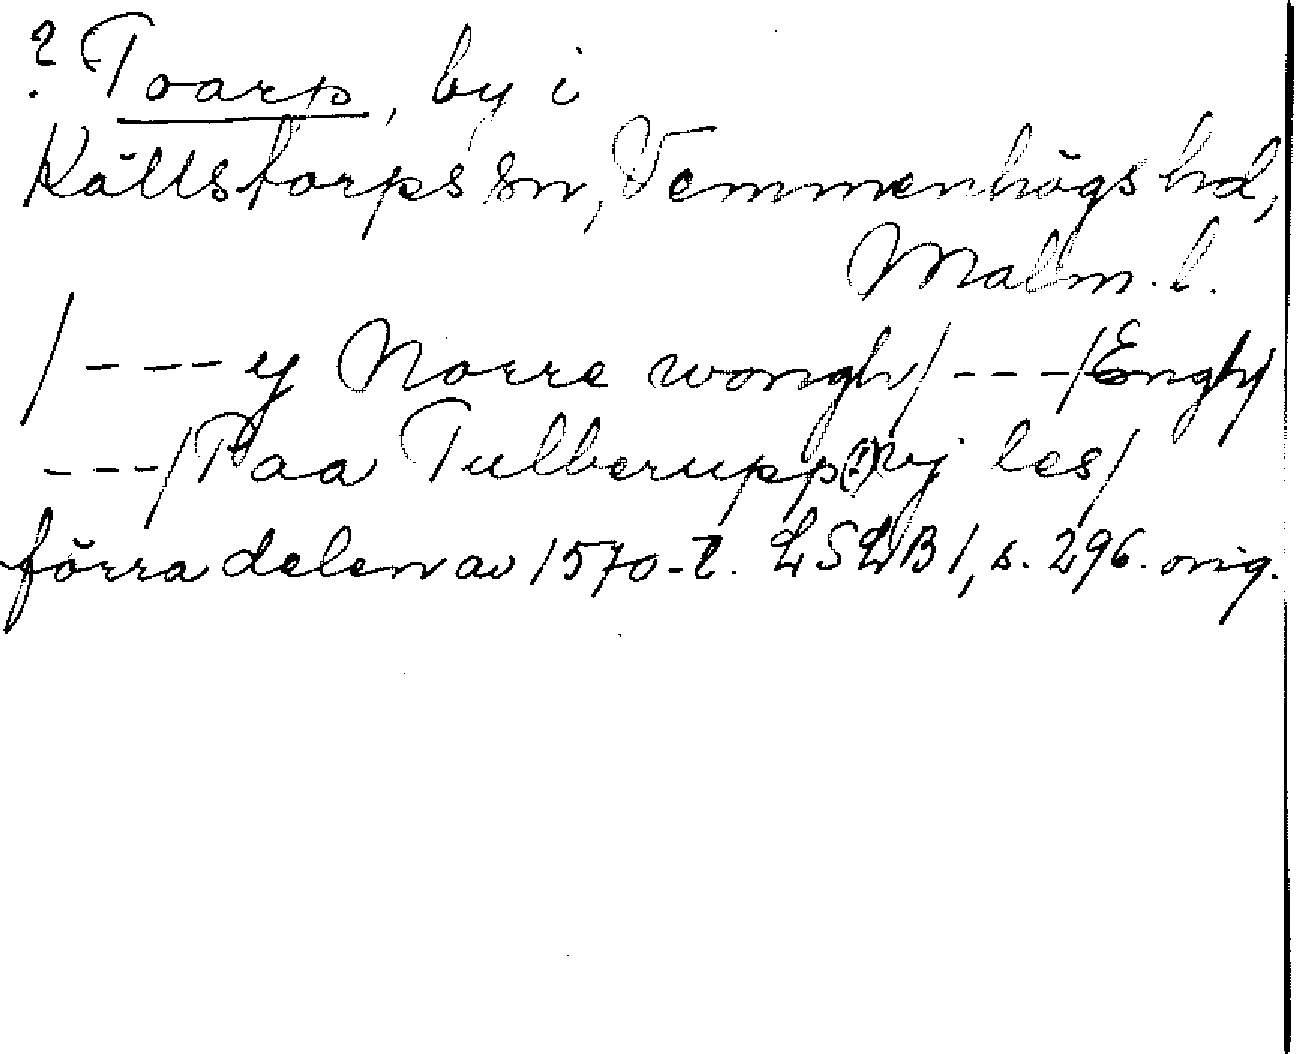 ? Toarp, by i
Källstorps sn, Vemmenhögs hd,
Malm. l.
/---y Norre wongh/---/Engh/
---/Paa Tulberupp(!) ij les/
förra delen av 1570-t. LSLB 1, s. 296. orig.